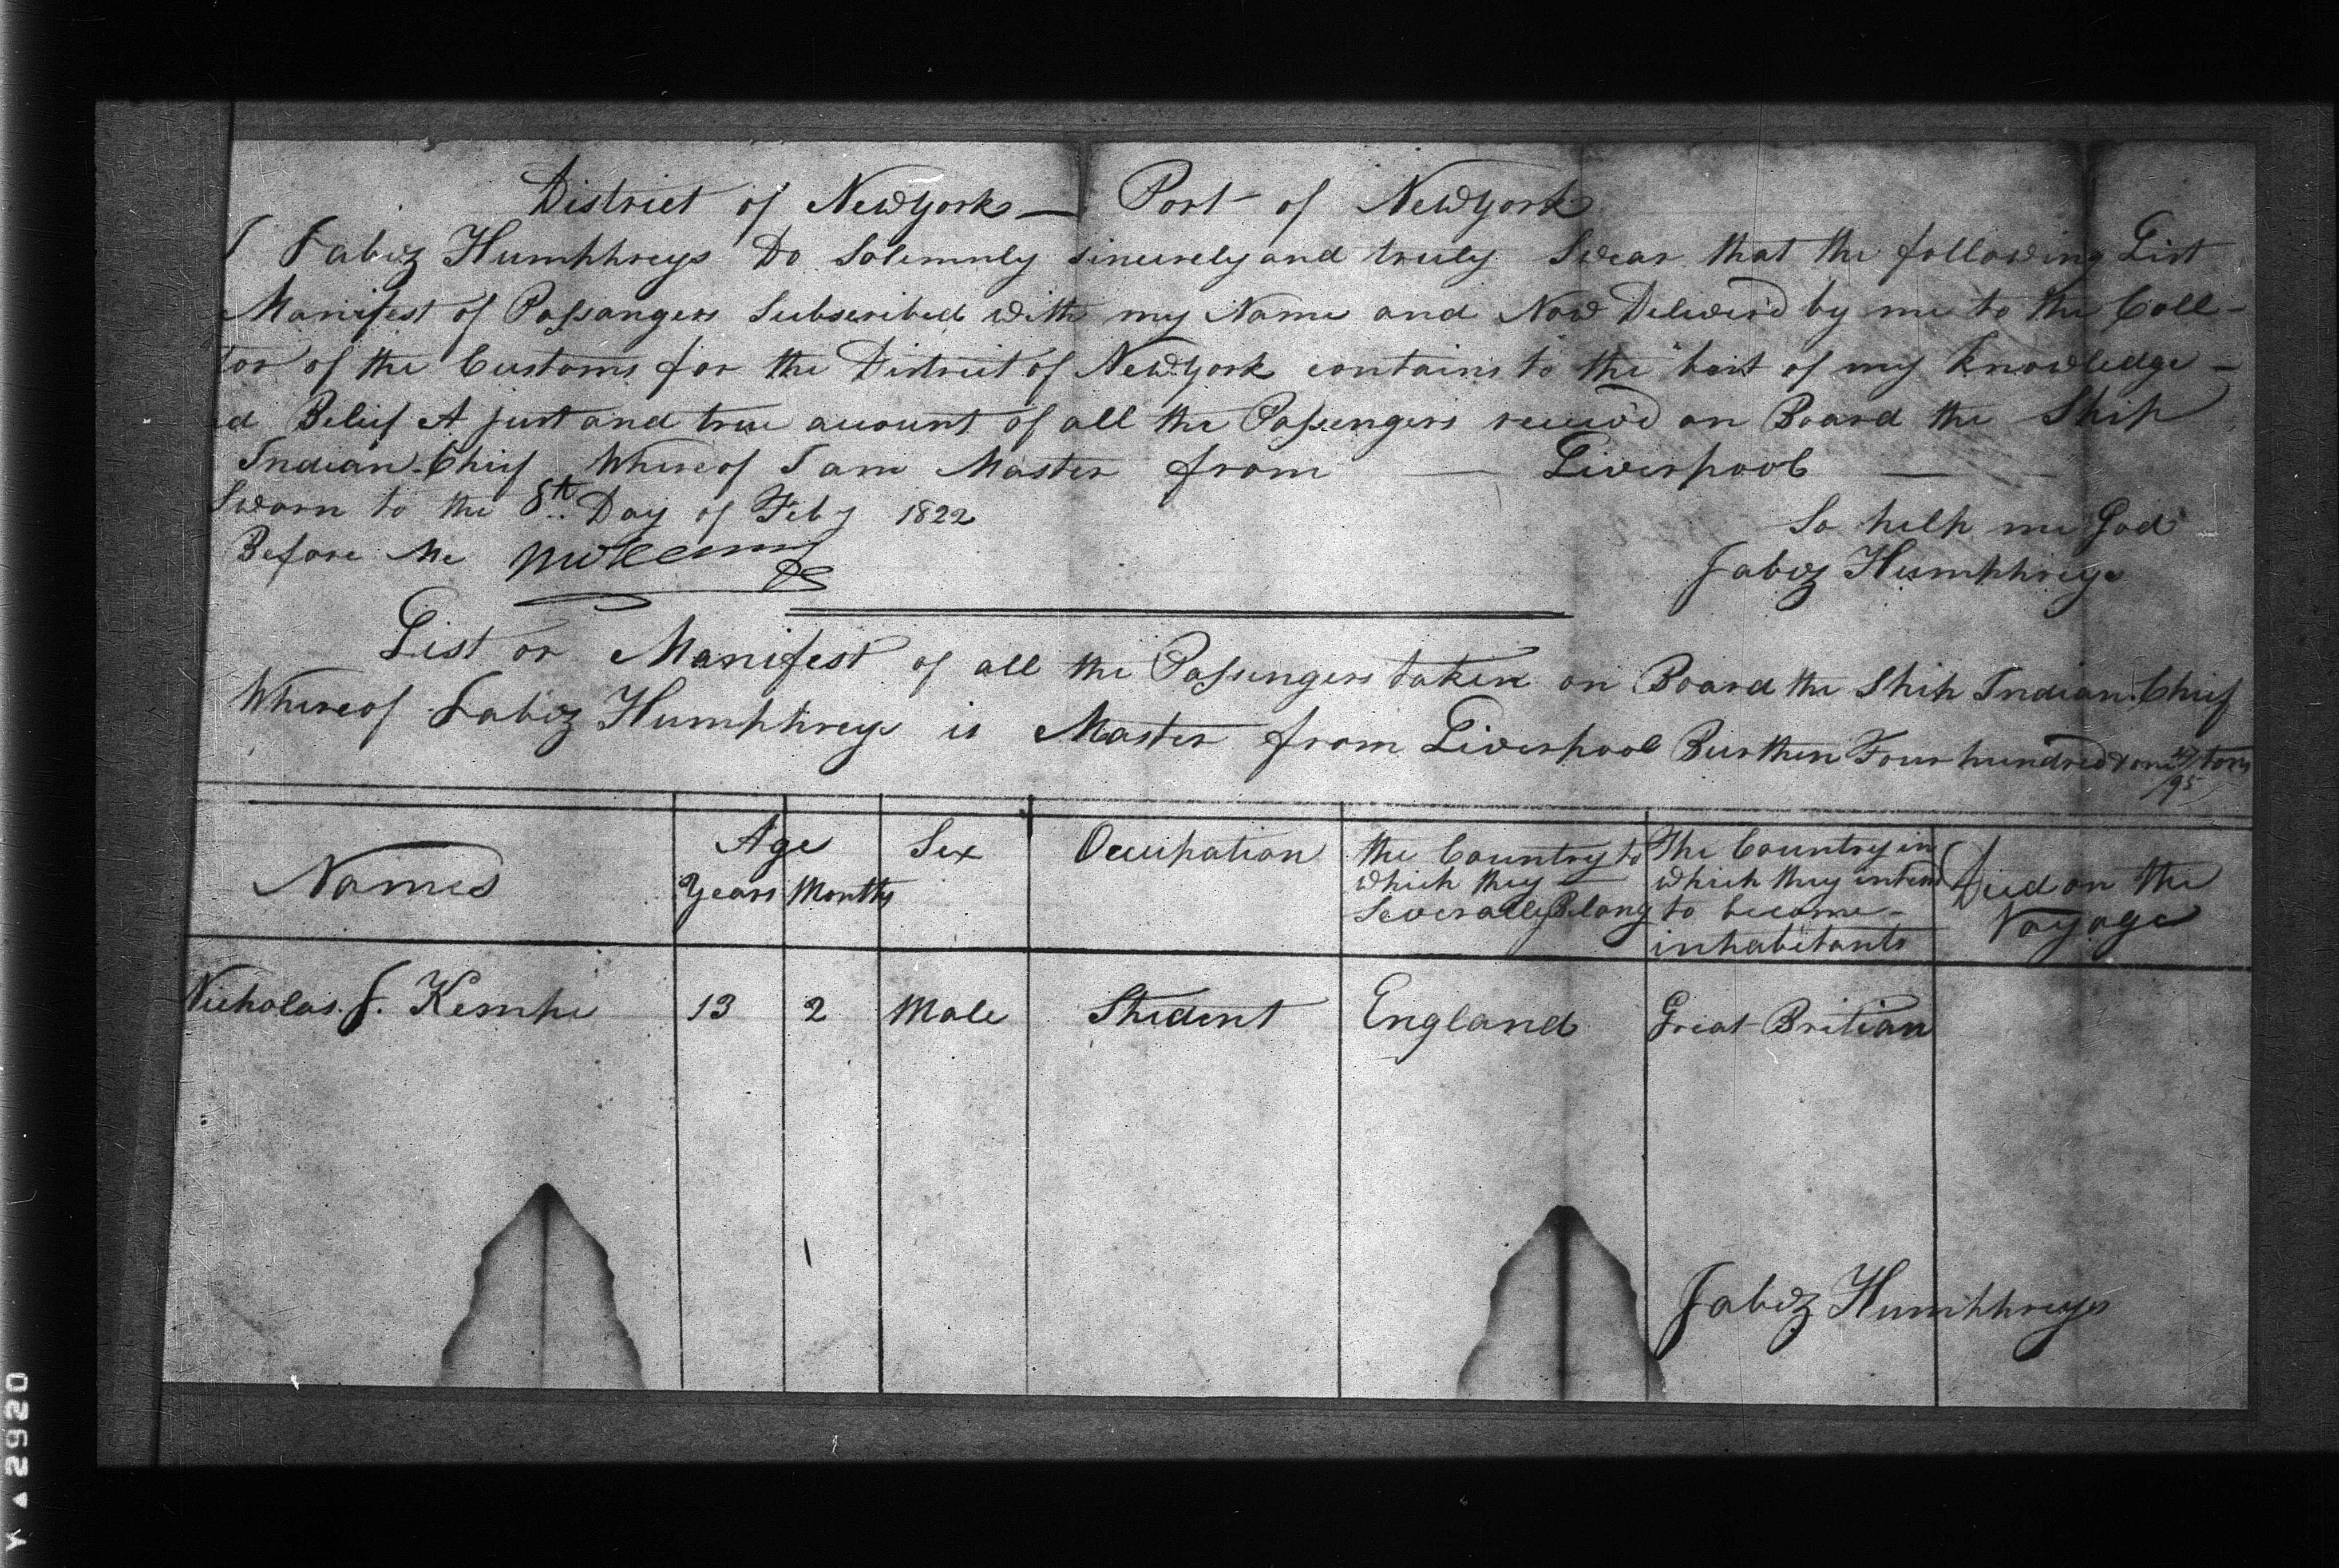 District of NewYork — Port of NewYork
I Jabez Humphreys Do Solemnly sincerely and truly Swear that the following List
Manifest of Passangers Subscribed with my Name and Now Deliver'd by me to the Coll-
tor of the Customs for the District of NewYork contains to the best of my Knowledge -
d Belief A just and true account of all the Passengers receiv'd on Board the Ship
Indian Chief Whereof I am Master from — Liverpool —
Sworn to the 8th Day of Feby 1822
So help me God
Before Me
Jabez Humphreys
List or Manifest of all the Passengers taken on Board the Ship Indian Chief
Whereof Jabez Humphreys is Master from Liverpool Burthen Four hundred & one /95 tons
Names
Age
Years Months
Sex
Occupation
the Country to
which they
Severally Belong
The Country in
which they intend
to become -
inhabitants
Died on the
Voyage
Nicholas J. Kemhe 13 2 Male Student England Great Britian
Jabez Humphreys
Y ▲ 2920